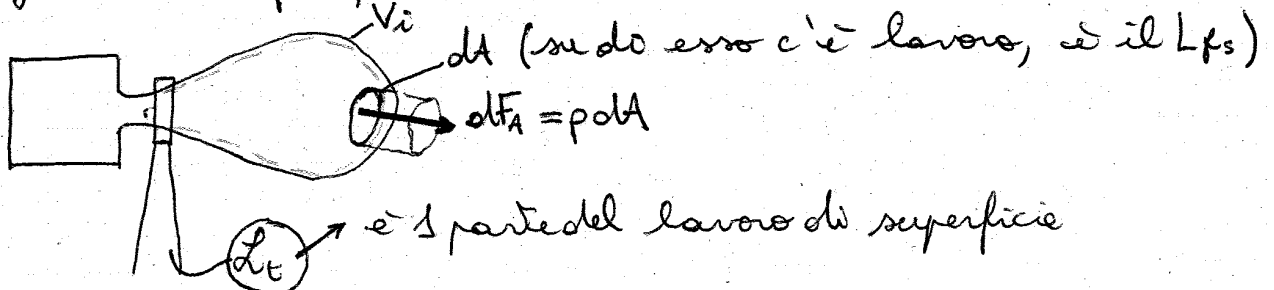 Vi
dA (su do esso c'è lavoro, è il Lfs)
dF_A = pdA
è 1 parte del lavoro di superficie
L_t